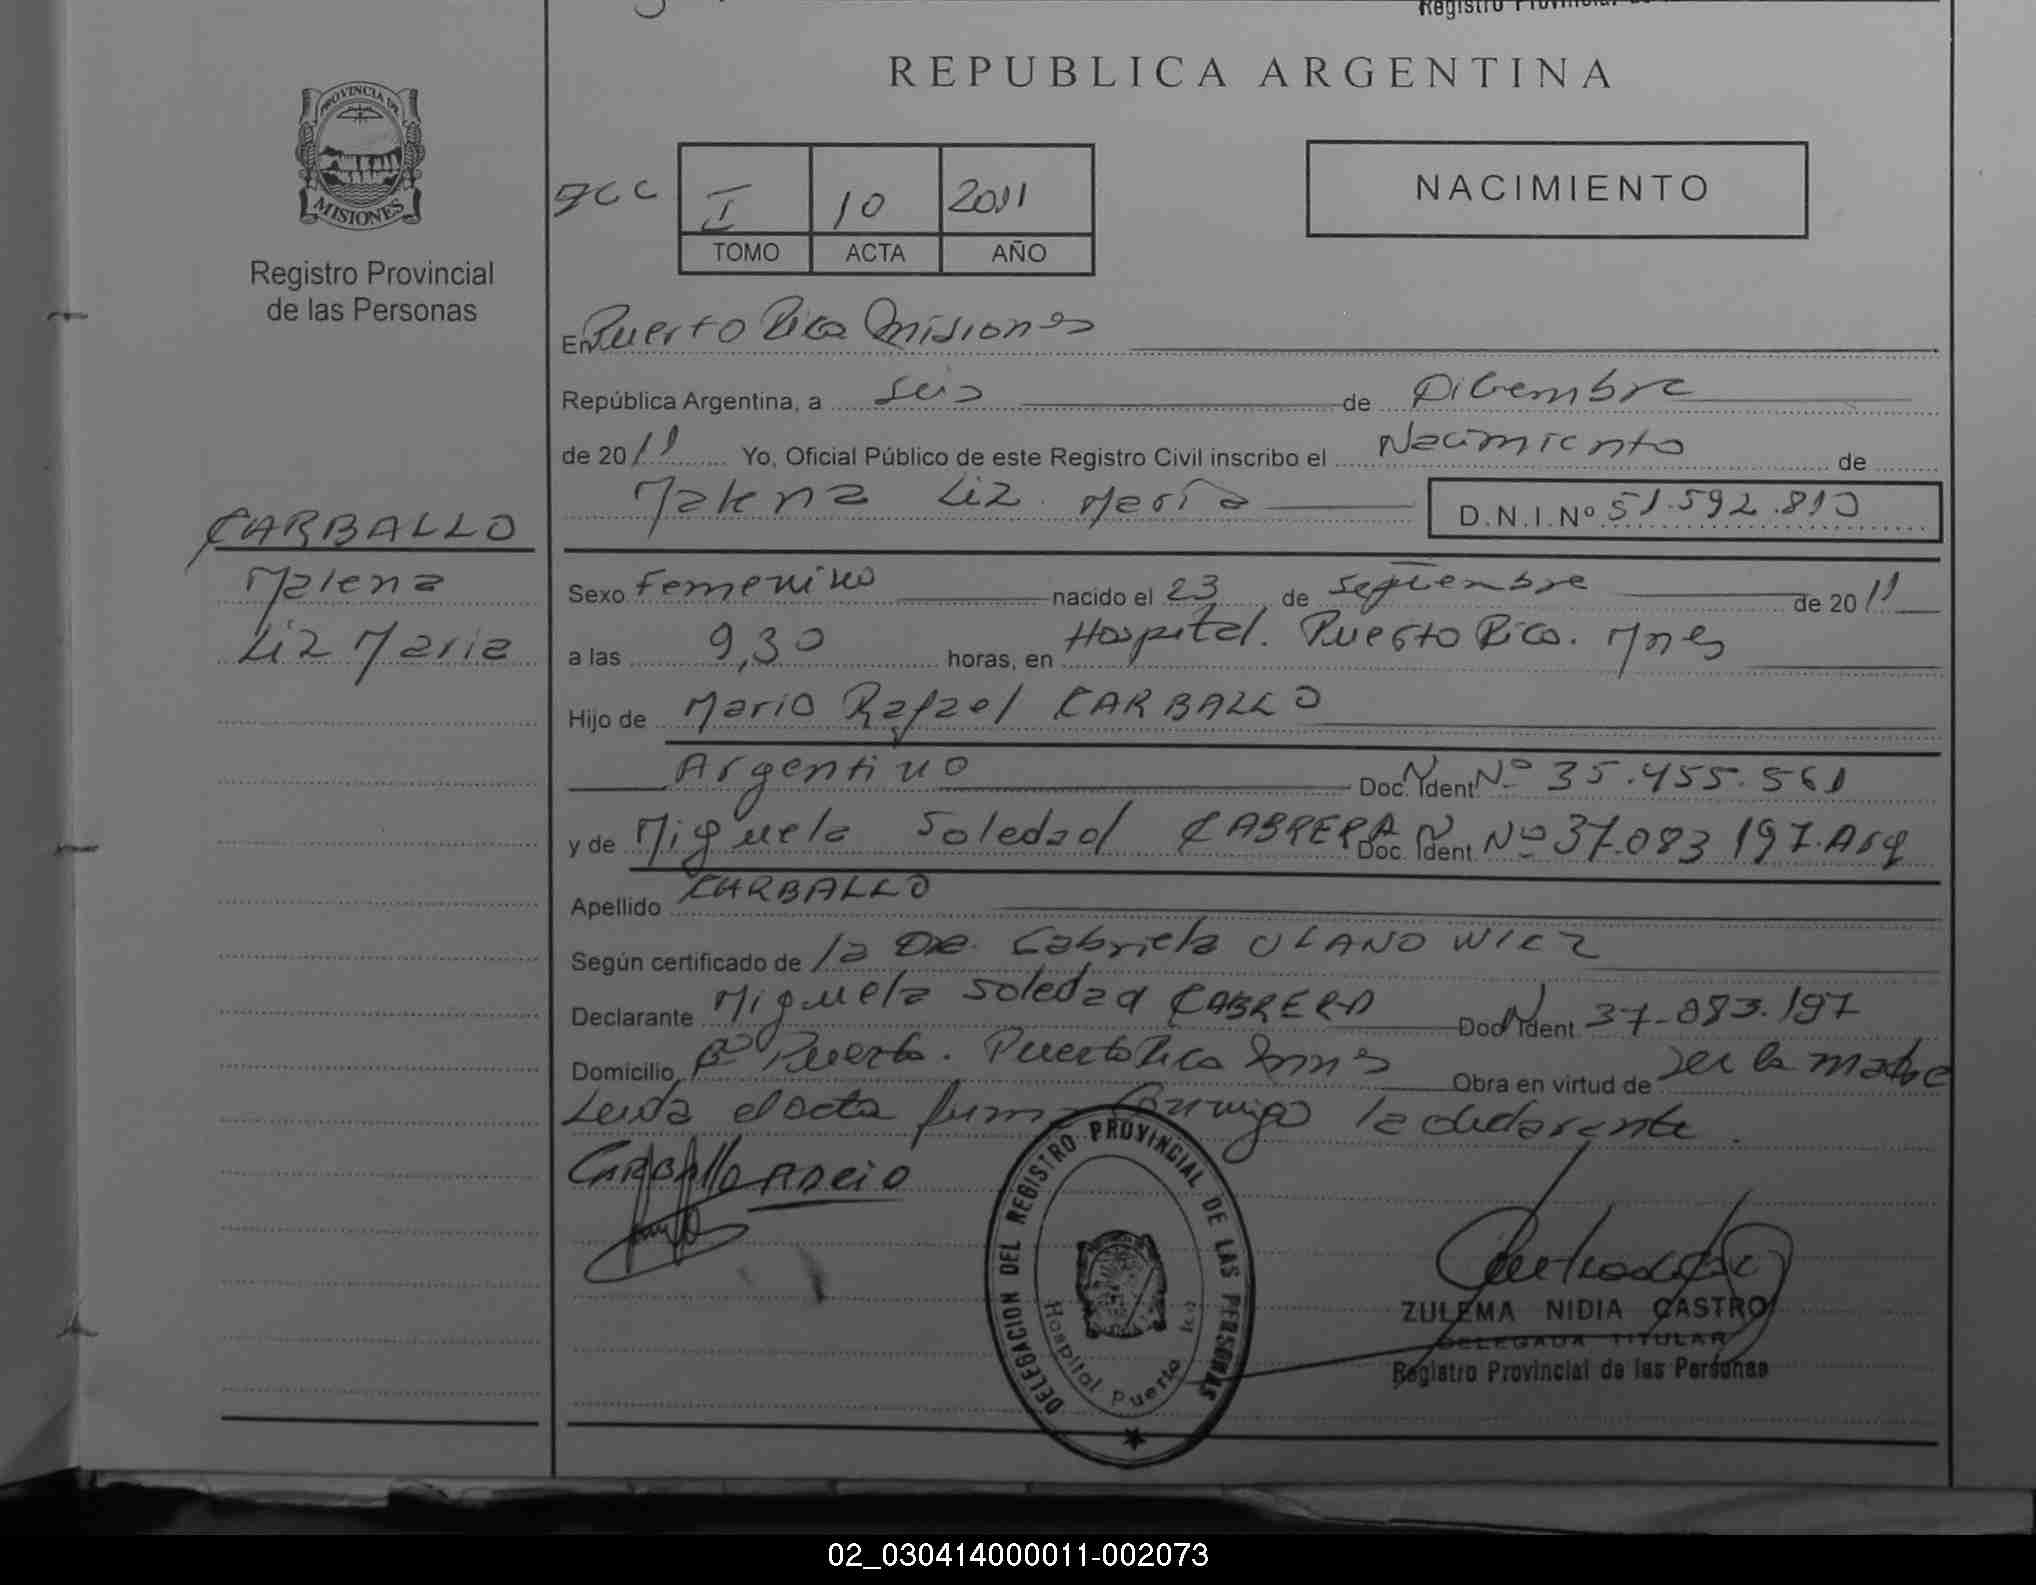 Registro Provincial de
REPUBLICA ARGENTINA
PROVINCIA DE
MISIONES
Registro Provincial
de las Personas
I 10 2011
TOMO ACTA AÑO
NACIMIENTO
En Puerto Rico Misiones
República Argentina, a Seis de Diciembre
de 2011 Yo, Oficial Público de este Registro Civil inscribo el Nacimiento de
Malena Liz María D.N.I.Nº 51.592.810
CARBALLO
Malena
Liz Maria
Sexo Femenino nacido el 23 de septiembre de 2011
a las 9,30 horas, en Hospital. Puerto Rico. Mnes
Hijo de Mario Rafael CARBALLO
Argentino Doc. N Ident Nº 35.455.561
y de Miguela Soledad CABRERA Doc. N Ident Nº 37.083 197. Arg
Apellido CARBALLO
Según certificado de la DRA. Gabriela ULANOWICZ
Declarante Miguela Soledad CABRERA Doc N Ident 37.083.197
Domicilio Bº Puerto. Puerto Rico Mnes Obra en virtud de ser la madre
Leida el acta firma conmigo la declarante.
CARBAllo MARIO
DELEGACION DEL REGISTRO PROVINCIAL DE LAS PERSONAS
Hospital Puerto Rico
ZULEMA NIDIA CASTRO
DELEGADA TITULAR
Registro Provincial de las Personas
02_030414000011-002073